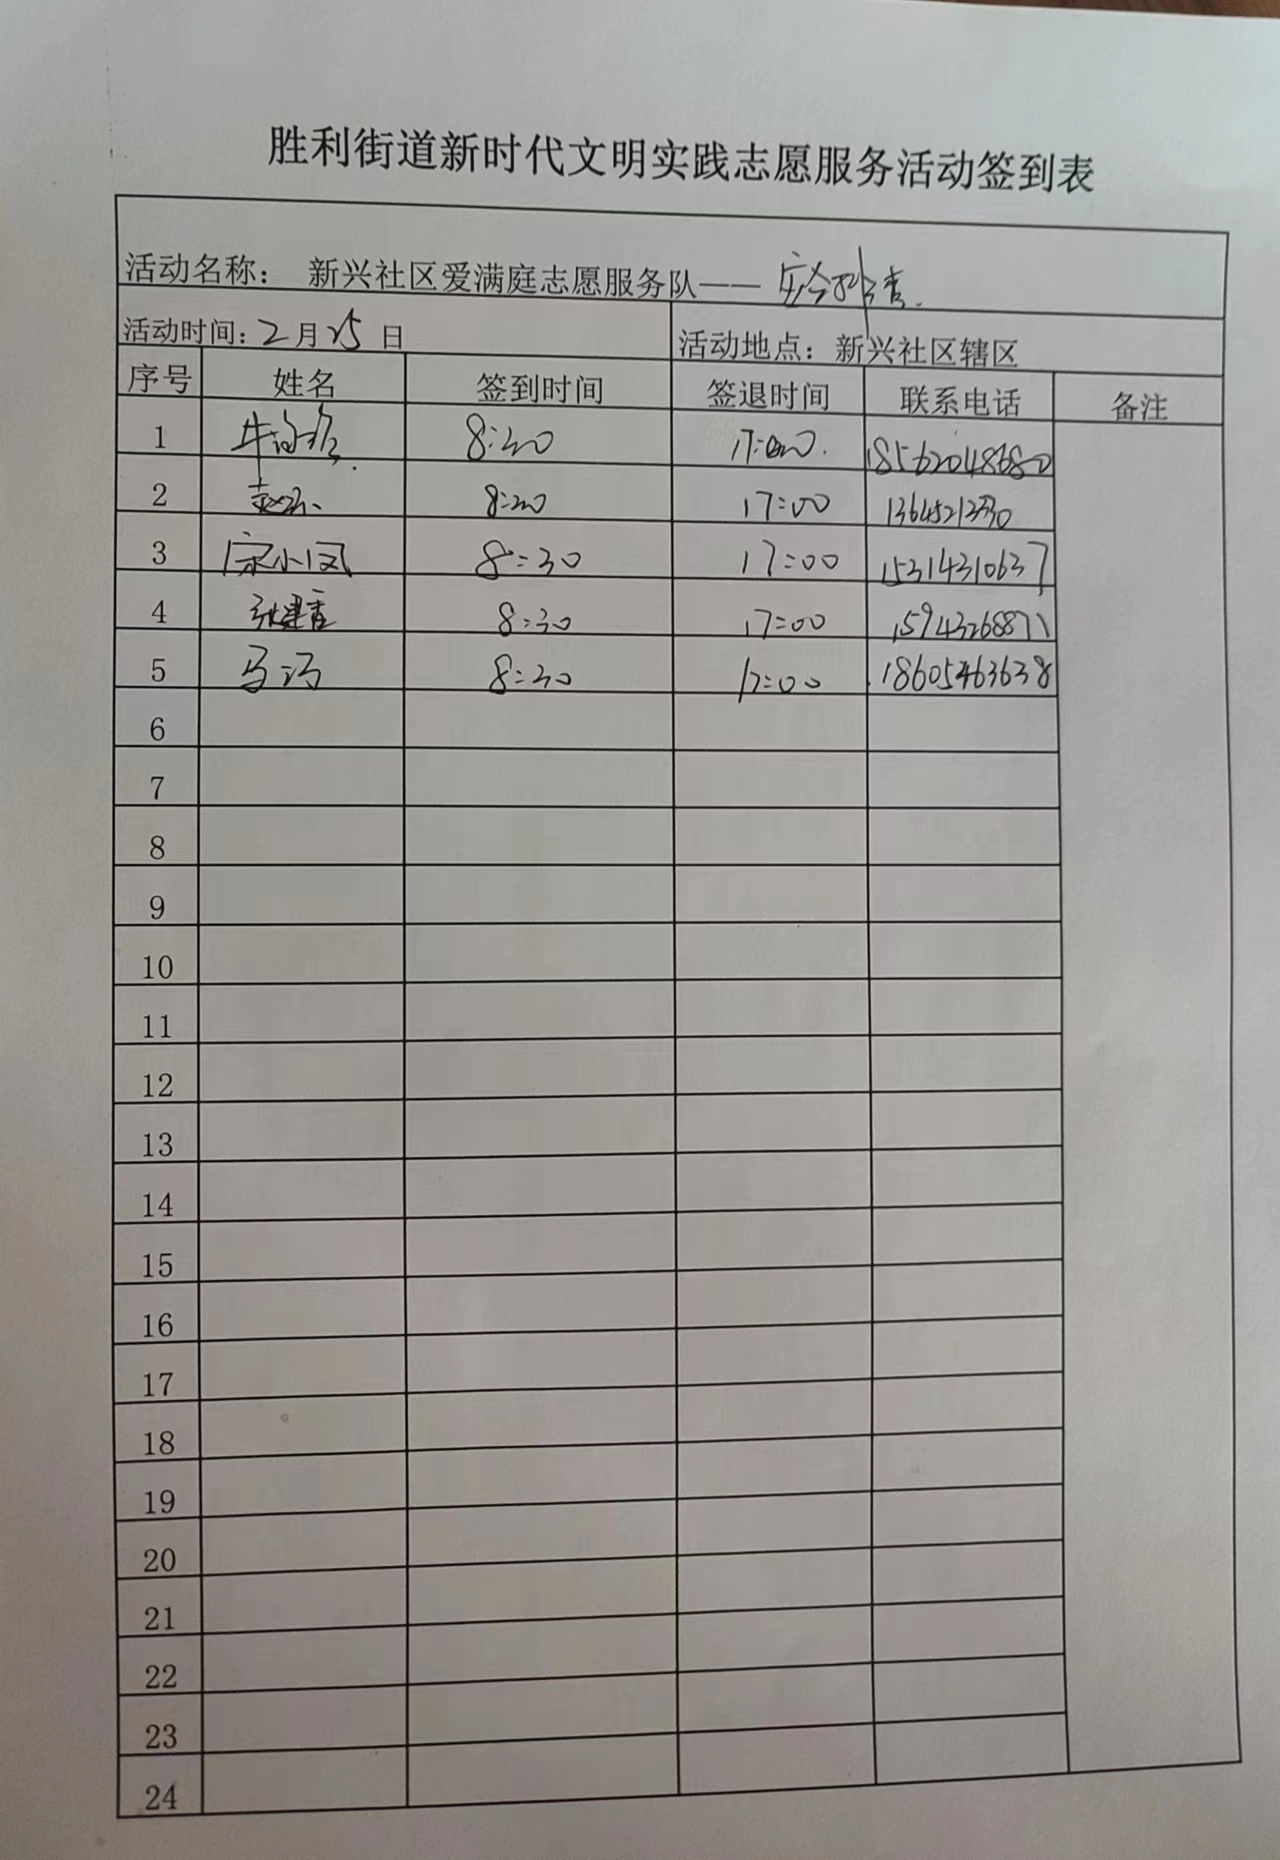 胜利街道新时代文明实践志愿服务活动签到表
活动名称： 新兴社区爱满庭志愿服务队—— 安全排查.
活动时间: 2月25日 活动地点：新兴社区辖区
序号 姓名 签到时间 签退时间 联系电话 备注
1 8:30 17:00. 18562048680
2 8:30 17:00
3 宋小凤 8:30 17:00 15314310637
4 张建香 8:30 17:00 15943268871
5 马 8:30 17:00 18605463638
6
7
8
9
10
11
12
13
14
15
16
17
18
19
20
21
22
23
24